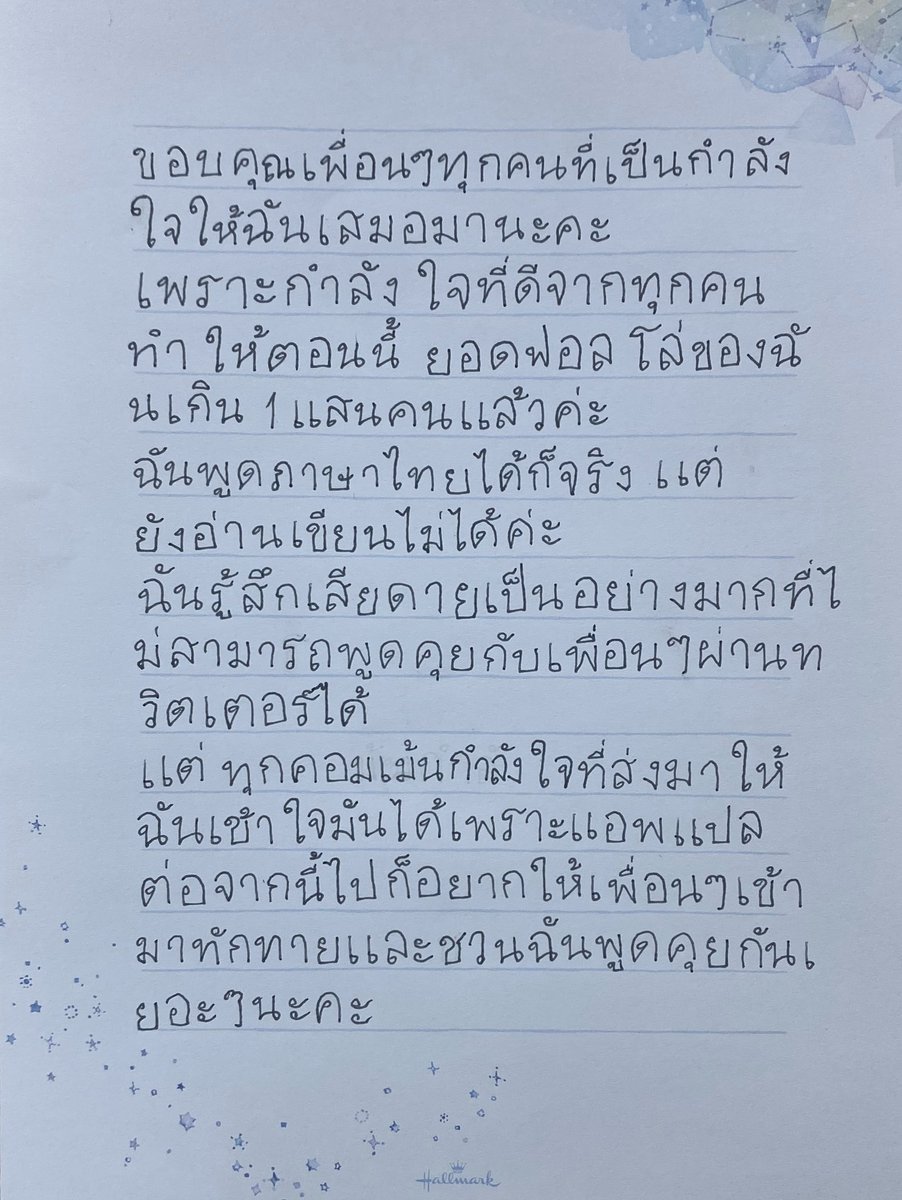 ขอบคุณเพื่อนๆทุกคนที่เป็นกำลัง
ใจให้ฉันเสมอมานะคะ
เพราะกำลังใจที่ดีจากทุกคน
ทำให้ตอนนี้ ยอดฟอลโล่ของฉั
นเกิน 1 แสนคนแล้วค่ะ
ฉันพูดภาษาไทยได้ก็จริง แต่
ยังอ่านเขียนไม่ได้ค่ะ
ฉันรู้สึกเสียดายเป็นอย่างมากที่ไ
ม่สามารถพูดคุยกับเพื่อนๆผ่านท
วิตเตอร์ได้
แต่ทุกคอมเม้นกำลังใจที่ส่งมาให้
ฉันเข้าใจมันได้เพราะแอพแปล
ต่อจากนี้ไปก็อยากให้เพื่อนๆเข้า
มาทักทายและชวนฉันพูดคุยกันเ
ยอะๆนะคะ
Hallmark